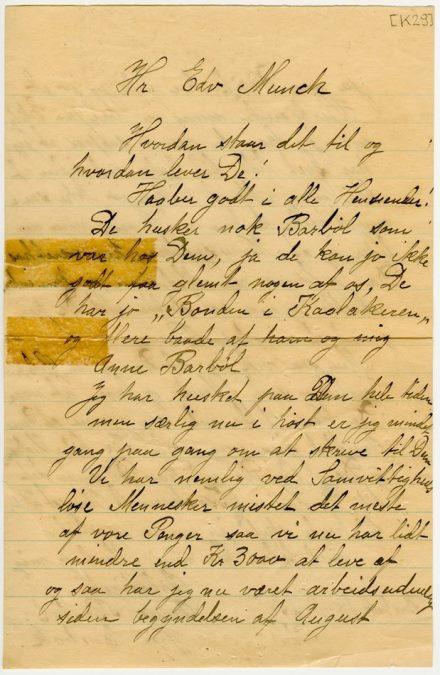 [K29]
Hr. Edv Munck
Hvordan staar det til og
hvordan lever De!
Haaber godt i alle Henseender!
De husker nok Barböl som
var hos Dem, ja de kan jo ikke
godt paa glemt nogen at os, De
har jo „Bonden i Kaalakeren„
og flere baade af ham og mig
Anne Barböl
Jeg har husket paa Dem hele tiden
men særlig nu i höst er jeg mindet
gang paa gang om at skrive til Dem
Vi har nemlig ved Samvittigheds
löse Mennesker mistet det meste
af vore Penger saa vi nu har lidt
mindre end Kr 3000 at leve af
og saa har jeg nu været arbeidsudyg
siden begyndelsen af August